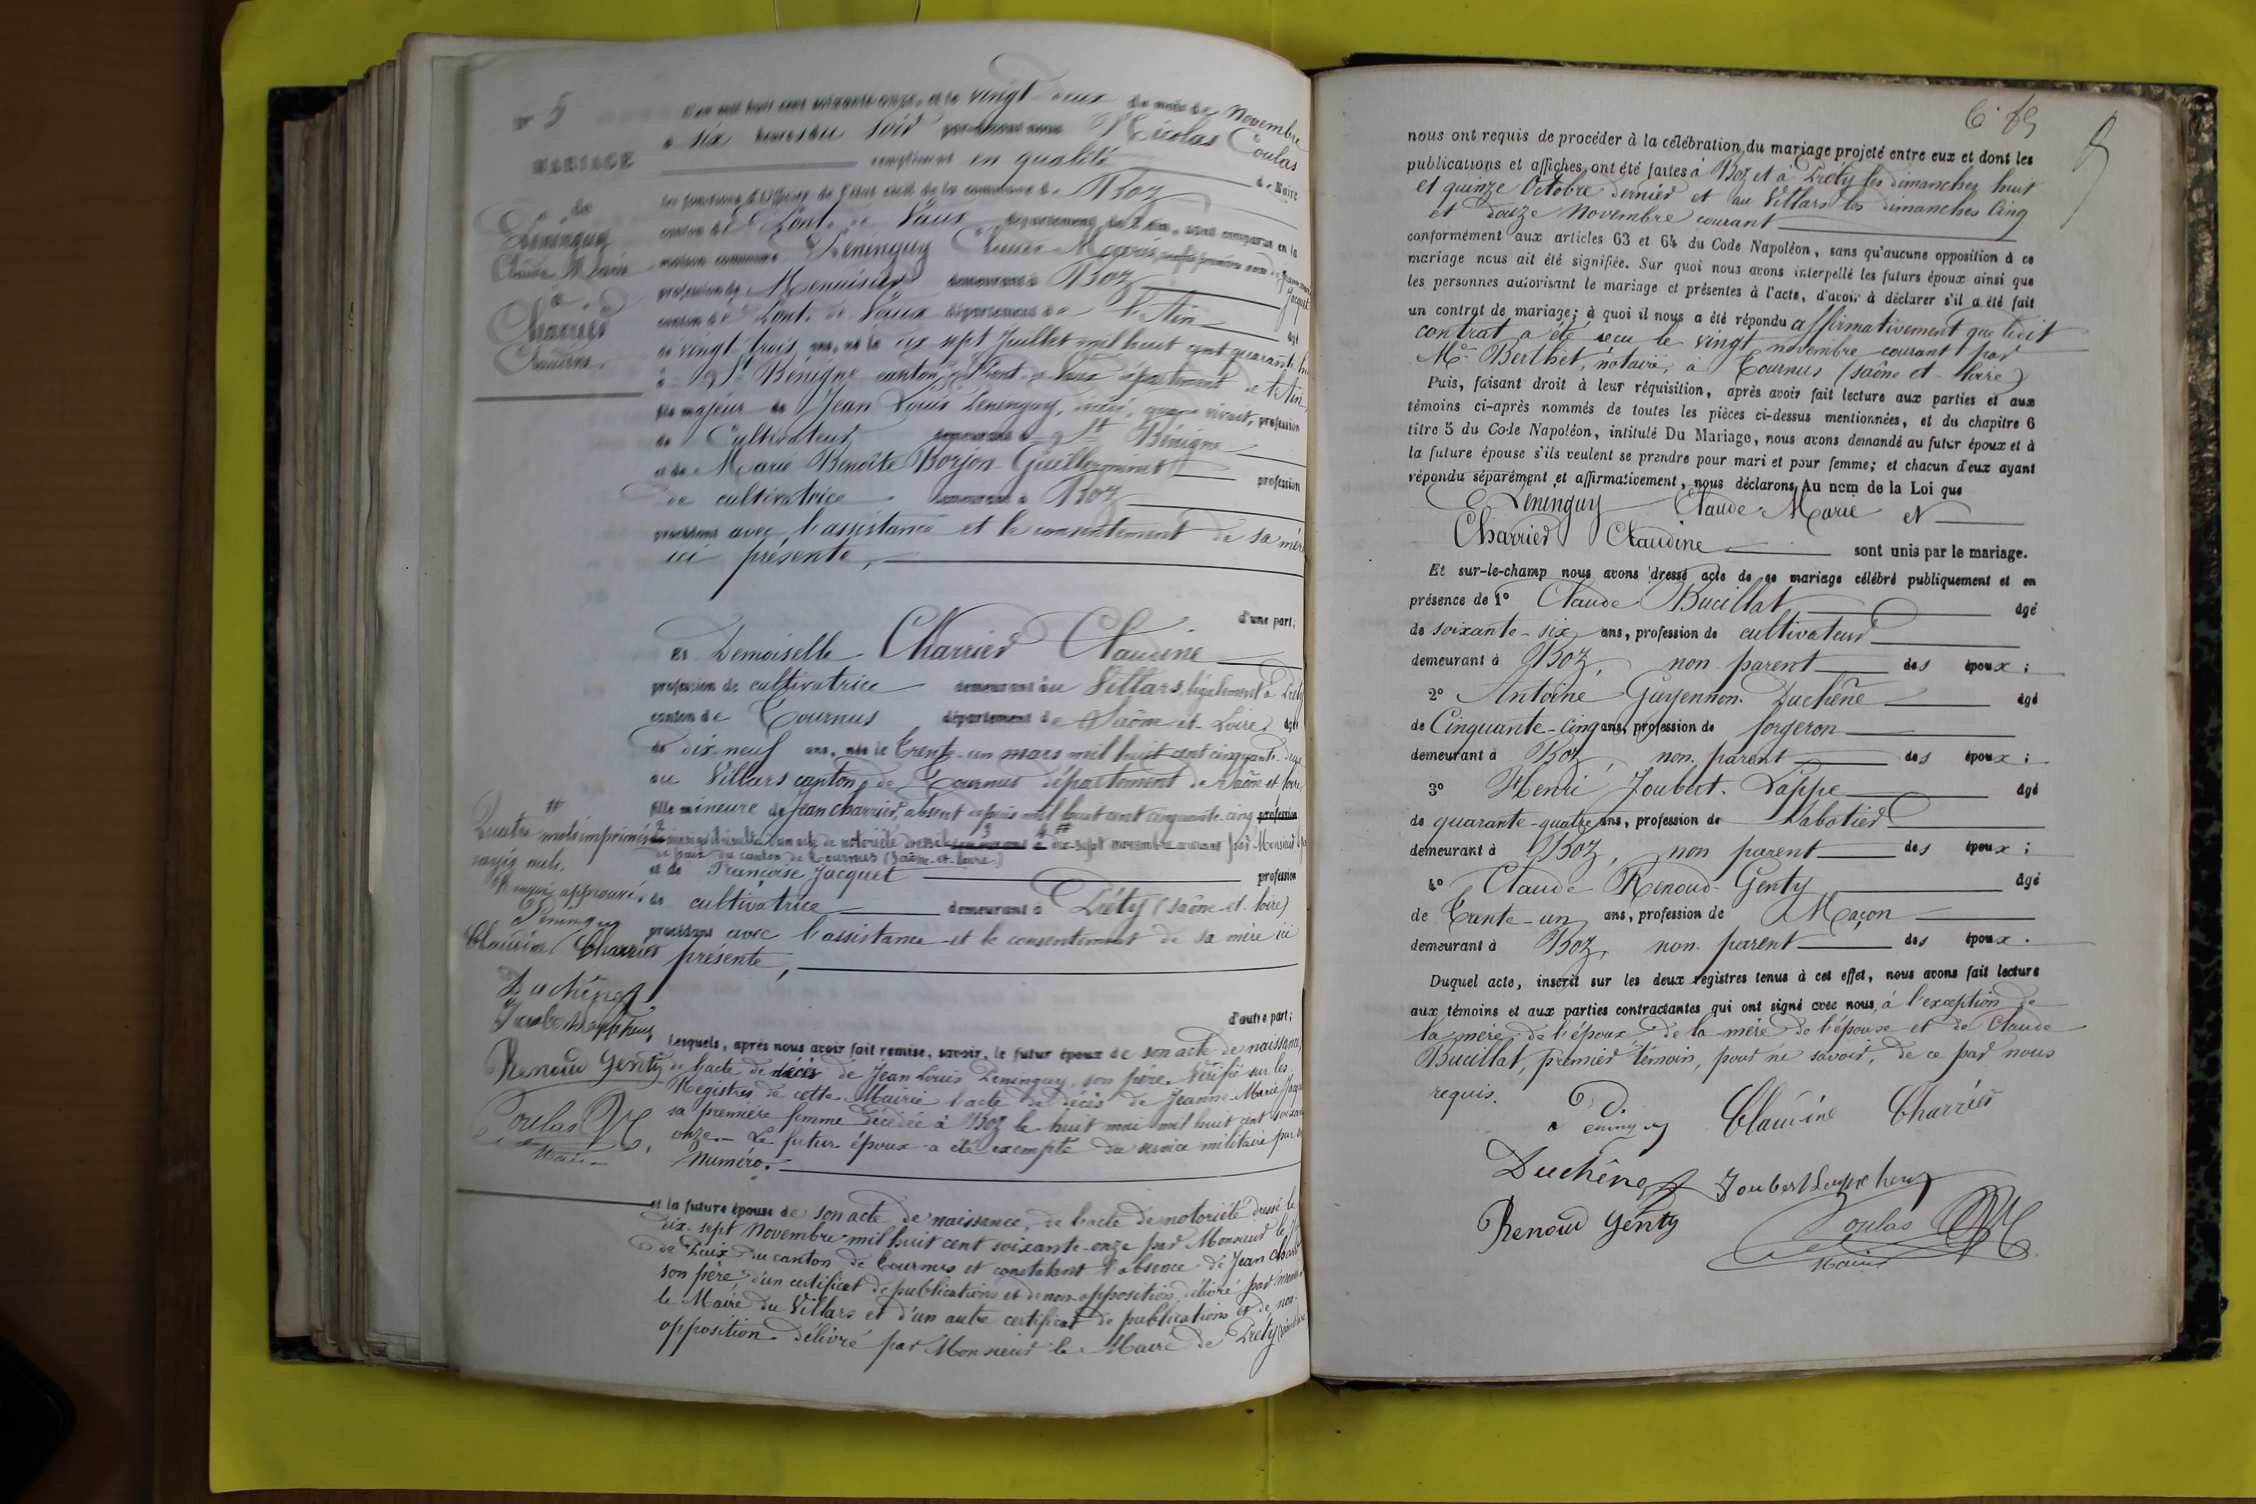 N° 5
MARIAGE
de
Péninguy
Claude Marie
à
Charrier
Claudine
L'an mil huit cent soixante-onze, et le vingt-deux du mois de Novembre
à six heures du soir par-devant nous Nicolas Coulas
remplissant en qualité de Maire
les fonctions d'Officier de l'état civil de la commune de Boz
canton de Pont-de-Vaux département de l'Ain, sont comparus en la
maison commune Péninguy Claude Marie, veuf de première noce de Jeanne Marie Jacquet
profession de Menuisier demeurant à Boz
canton de Pont-de-Vaux département de l'Ain âgé
de vingt-trois ans, né le dix sept Juillet mil huit cent quarante
à St Bénigne canton de Pont-de-Vaux département de l'Ain
fils majeur de Jean Louis Peninguy, décédé, quand vivait, profession
de Cultivateur demeurant à St Bénigne
et de Marie Benoîte Borjon-Guillerminet profession
de cultivatrice demeurant à Boz
procédant avec l'assistance et le consentement de sa mère
ici présente,
d'une part;
Et Demoiselle Charrier Claudine
profession de cultivatrice demeurant au Villars, légalement à Préty
canton de Tournus département de Saône-et-Loire âgée
de dix-neuf ans, née le trente-un mars mil huit cent cinquante-deux
au Villars canton de Tournus département de Saône et Loire
fille mineure de Jean Charrier, absent depuis mil huit cent cinquante-cinq profession
de ainsi qu'il résulte d'un acte de notoriété dressé le demeurant à dix-sept novembre courant par Monsieur le juge
de paix du canton de Tournus (Saône-et-Loire)
et de Françoise Jacquet profession
de cultivatrice demeurant à Préty (Saône-et-Loire)
procédant avec l'assistance et le consentement de sa mère ici
présente,
d'autre part;
Quatre mots imprimés
rayés nuls.
Renvoi approuvé.
Péninguy
Claudine Charrier
Duchêne
Joubert Lappe henry
Renoud Genty
Coulas N
Maire
Lesquels, après nous avoir fait remise, savoir, le futur époux de son acte de naissance,
de l'acte de décès de Jean Louis Peninguy, son père. Vérifié sur les
Registres de cette Mairie l'acte de décès de Jeanne Marie Jacquet
sa première femme décédée à Boz le huit mai mil huit cent soixante
onze. – Le futur époux a été exempté du service militaire par son
Numéro.
et la future épouse de son acte de naissance, de l'acte de notoriété dressé le
dix-sept Novembre mil huit cent soixante-onze par Monsieur le Juge
de Paix du canton de Tournus et constatant l'absence de Jean Charrier
son père, d'un certificat de publications et de non-opposition délivré par Monsieur
le Maire du Villars et d'un autre certificat de publications et de non-
opposition délivré par Monsieur le Maire de Préty (Saône et Loire
nous ont requis de procéder à la célébration du mariage projeté entre eux et dont les
publications et affiches ont été faites à Boz et à Préty les dimanches huit
et quinze Octobre dernier et au Villars les dimanches Cinq
et douze Novembre courant
conformément aux articles 63 et 64 du Code Napoléon, sans qu'aucune opposition à ce
mariage nous ait été signifiée. Sur quoi nous avons interpellé les futurs époux ainsi que
les personnes autorisant le mariage et présentes à l'acte, d'avoir à déclarer s'il a été fait
un contrat de mariage; à quoi il nous a été répondu affirmativement que ledit
contrat a été reçu le vingt novembre courant par
Me Berthet, notaire, à Tournus (Saône et Loire)
Puis, faisant droit à leur réquisition, après avoir fait lecture aux parties et aux
témoins ci-après nommés de toutes les pièces ci-dessus mentionnées, et du chapitre 6
titre 5 du Code Napoléon, intitulé Du Mariage, nous avons demandé au futur époux et à
la future épouse s'ils veulent se prendre pour mari et pour femme; et chacun d'eux ayant
répondu séparément et affirmativement, nous déclarons Au nom de la Loi que
Péninguy Claude-Marie et
Charrier Claudine sont unis par le mariage.
Et sur-le-champ nous avons dressé acte de ce mariage célébré publiquement et en
présence de 1° Claude Bucillat âgé
de soixante-six ans, profession de cultivateur
demeurant à Boz, non parent des époux;
2° Antoine Guyennon-Duchêne âgé
de Cinquante-cinq ans, profession de forgeron
demeurant à Boz, non parent des époux;
3° Henri Joubert-Lappe âgé
de quarante-quatre ans, profession de Sabotier
demeurant à Boz, non parent des époux;
4° Claude Renoud-Genty âgé
de Trente-un ans, profession de Maçon
demeurant à Boz, non parent des époux.
Duquel acte, inscrit sur les deux registres tenus à cet effet, nous avons fait lecture
aux témoins et aux parties contractantes qui ont signé avec nous, à l'exception de
la mère de l'époux, de la mère de l'épouse et de Claude
Bucillat, premier témoin, pour ne savoir, de ce par nous
requis.
Péninguy Claudine Charrier
Duchêne Joubert Lappe henry
Renoud Genty Coulas N
Maire